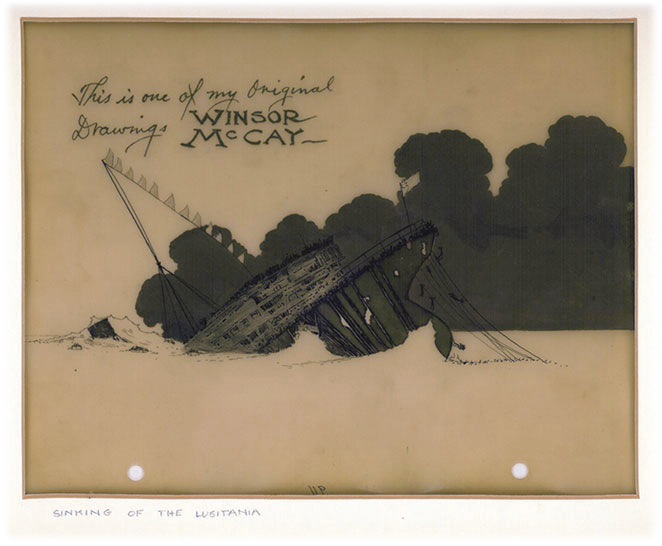 This is one of my Original
Drawings WINSOR
McCAY
11P
SINKING OF THE LUSITANIA